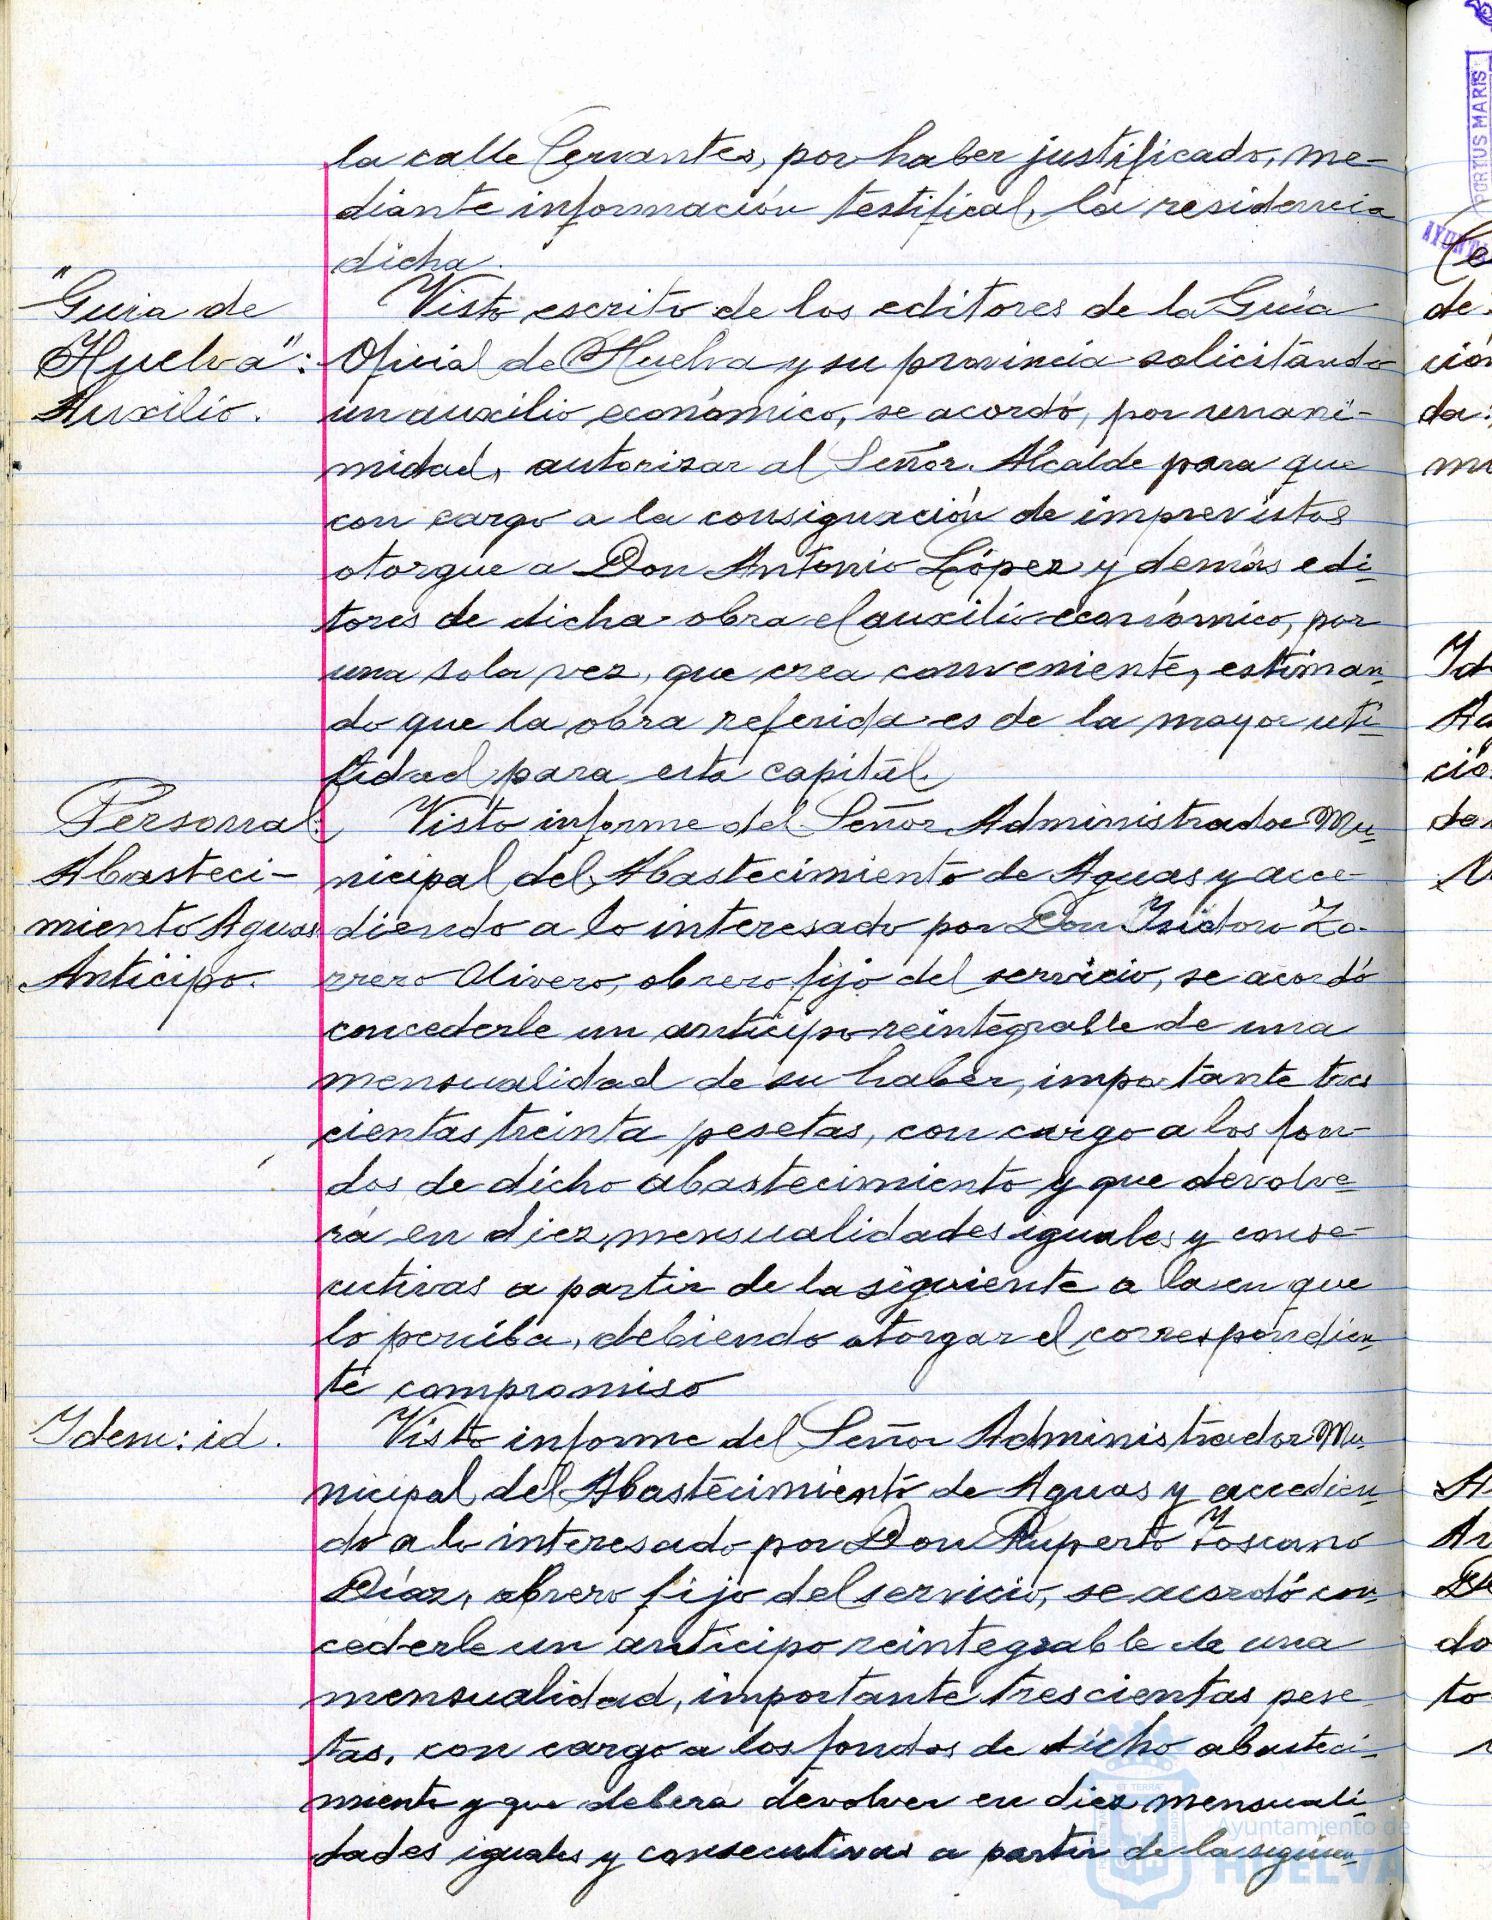 la calle Cervantes, por haber justificado, me-
diante información testifical, la residencia
dicha.
"Guia de
Huelva":
Auxilio.
Visto escrito de los editores de la Guía
Oficial de Huelva y su provincia solicitando
un auxilio económico, se acordó, por unani-
midad, autorizar al Señor Alcalde para que
con cargo a la consignación de imprevistos
otorgue a Don Antonio López y demás edi-
tores de dicha obra el auxilio económico, por
una sola vez, que crea conveniente, estiman-
do que la obra referida es de la mayor uti-
lidad para esta capital.
Personal:
Abasteci-
miento Aguas
Anticipo.
Visto informe del Señor Administrador Mu-
nicipal del Abastecimiento de Aguas y acce-
diendo a lo interesado por Don Isidoro Zo-
rrero Olivero, obrero fijo del servicio, se acordó
concederle un anticipo reintegrable de una
mensualidad de su haber, importante tres
cientas treinta pesetas, con cargo a los fon-
dos de dicho abastecimiento y que devolve-
rá en diez mensualidades iguales y conse-
cutivas a partir de la siguiente a la en que
lo perciba, debiendo otorgar el correspondien-
te compromiso
Idem: id.
Visto informe del Señor Administrador Mu-
nicipal del Abastecimiento de Aguas y accedien-
do a lo interesado por Don Ruperto Toscano
Díaz, obrero fijo del servicio, se acordó con-
cederle un anticipo reintegrable de una
mensualidad, importante trescientas pese
tas, con cargo a los fondos de dicho abasteci-
miento y que deberá devolver en diez mensuali-
dades iguales y consecutivas a partir de la siguien-
PORTUS MARIS
Ayuntamiento de
HUELVA